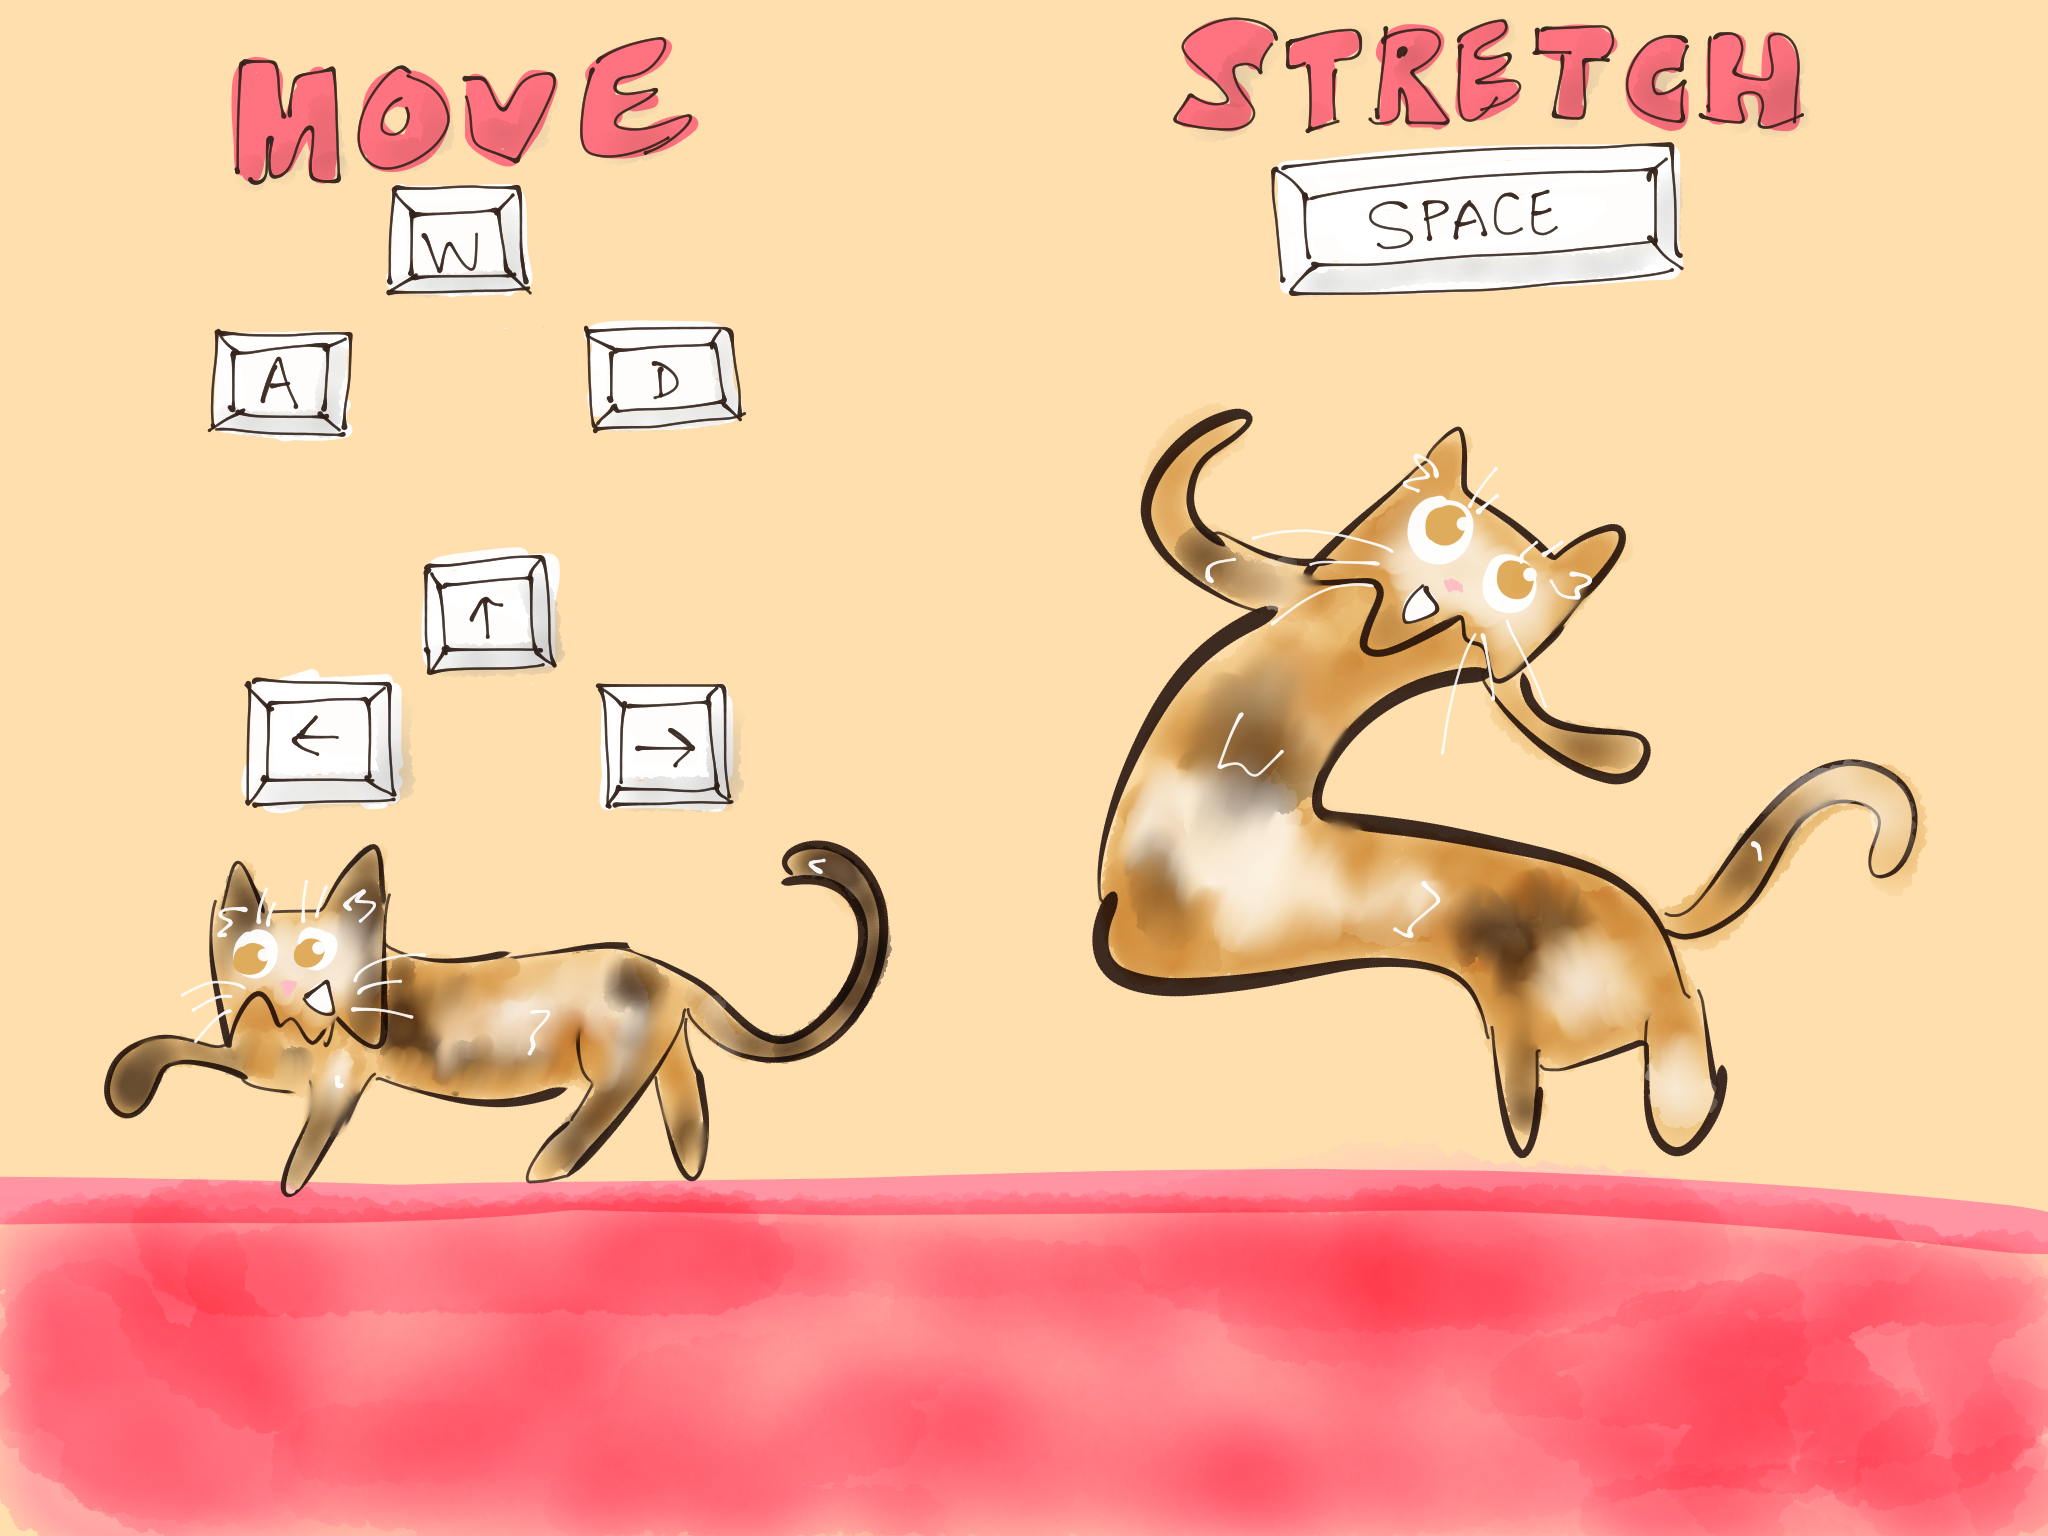 MOVE
W
A D
↑
← →
STRETCH
SPACE